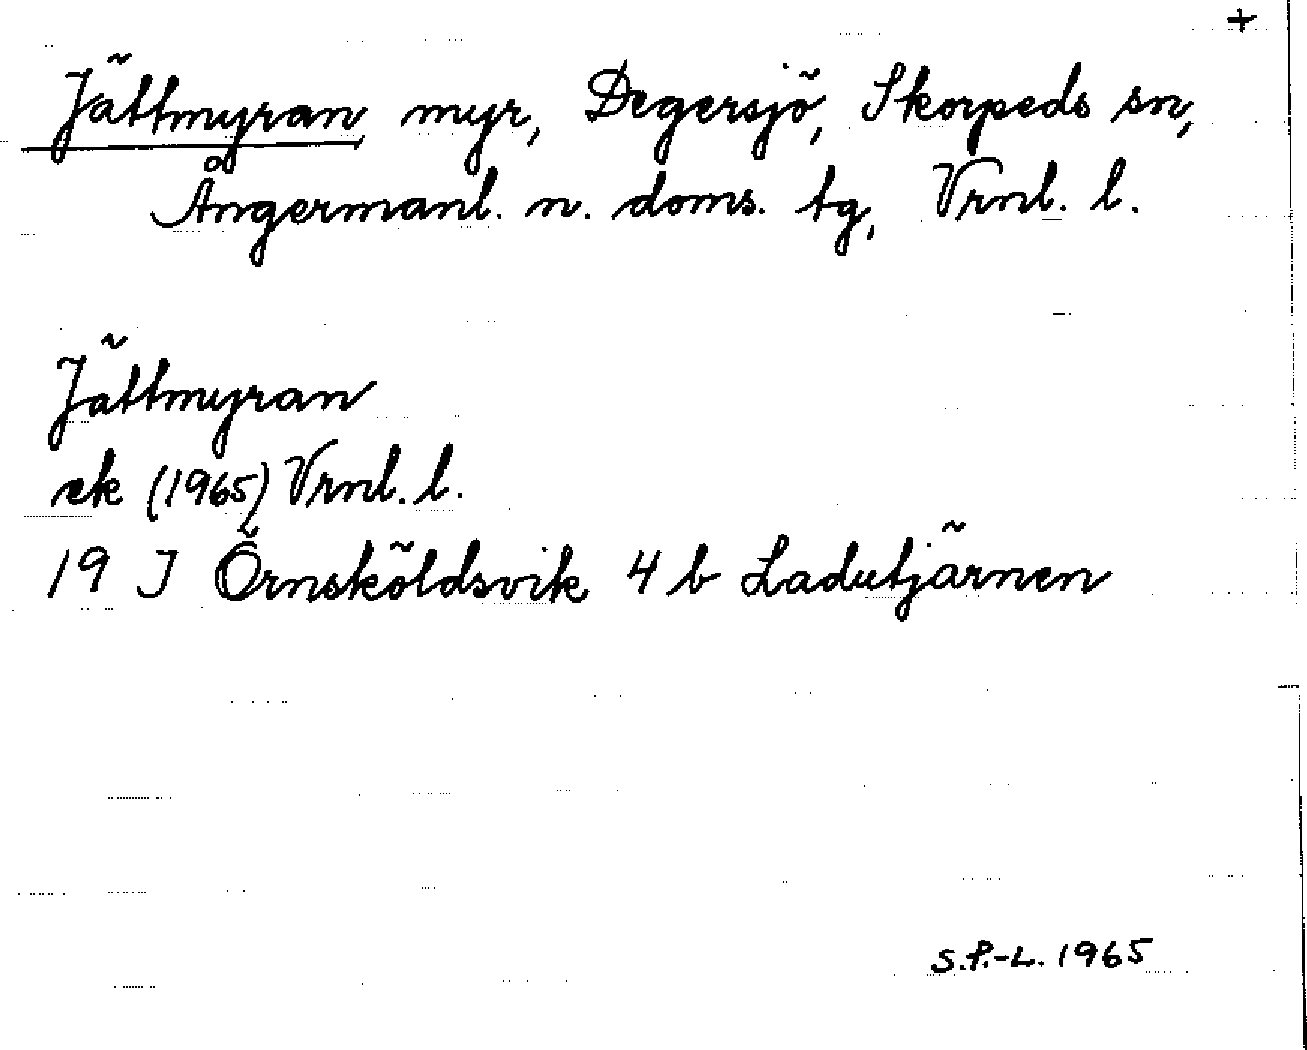 +
Jättmyran myr, Degersjö, Skorpeds sn,
Ångermanl. n. doms. tg, Vrnl. l.
Jättmyran
ek (1965) Vrnl. l.
19 J Örnsköldsvik 4 b Ladutjärnen
S.P.-L. 1965